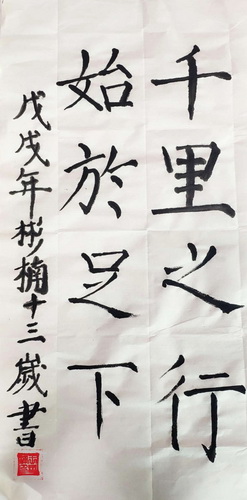 千里之行
始於足下
戊戌年彬楠十三歲書